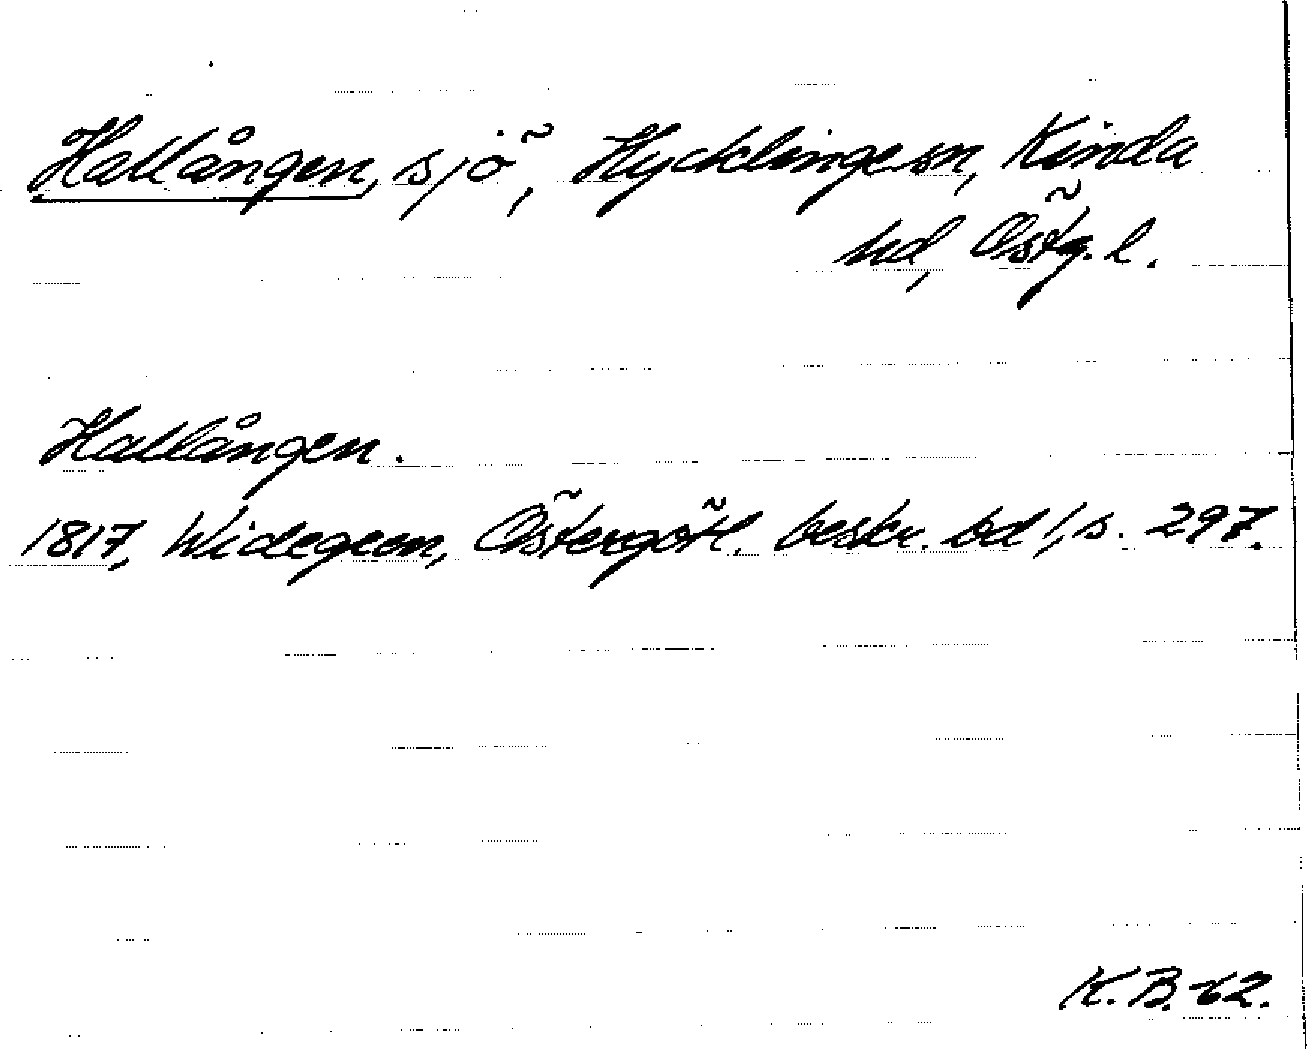 Hallången, sjö, Hycklinge sn, Kinda
hd, Östg. l.
Hallången.
1817, Widegren, Östergötl. beskr. bd 1, s. 297.
K.B.-62.